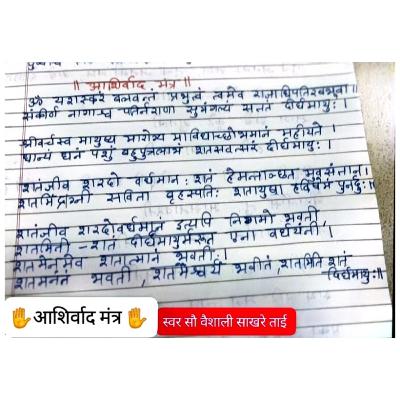 || आशिर्वाद मंत्र ||
ॐ यशस्करं बलवन्तं प्रभुत्वं त्वमेव राजाधिपतिरबभुवा।
संकीर्ण नागाश्व पतिर्नराणां सुमंगल्यं सततं दीर्घमायुः।
श्रीवर्चस्व मायुष्य मारोग्य माविधाच्छोभमानं महीयते।
धान्यं धनं पशुं बहुपुत्रलाभं शतसंवत्सरं दीर्घमायुः।
शतंजीव शरदो वर्धमानः शतं हेमन्ताञ्छतं मुवसंतान्।
शतमिंद्राग्नी सविता बृहस्पतिः शतायुषा हविषेमं पुनर्दुः॥
शतंजीव शरदोवर्धमान इत्यपि निगमो भवती
शतमिती - शतं दीर्घमायुर्मरुत एना वर्धयती
शतमेनमेव शतात्मानं भवती।
शतमनंतं भवती, शतमैश्वर्यं भवति, शतमिति शतं
दिर्घमायुः॥
✋आशिर्वाद मंत्र ✋
स्वर सौ वैशाली साखरे ताई